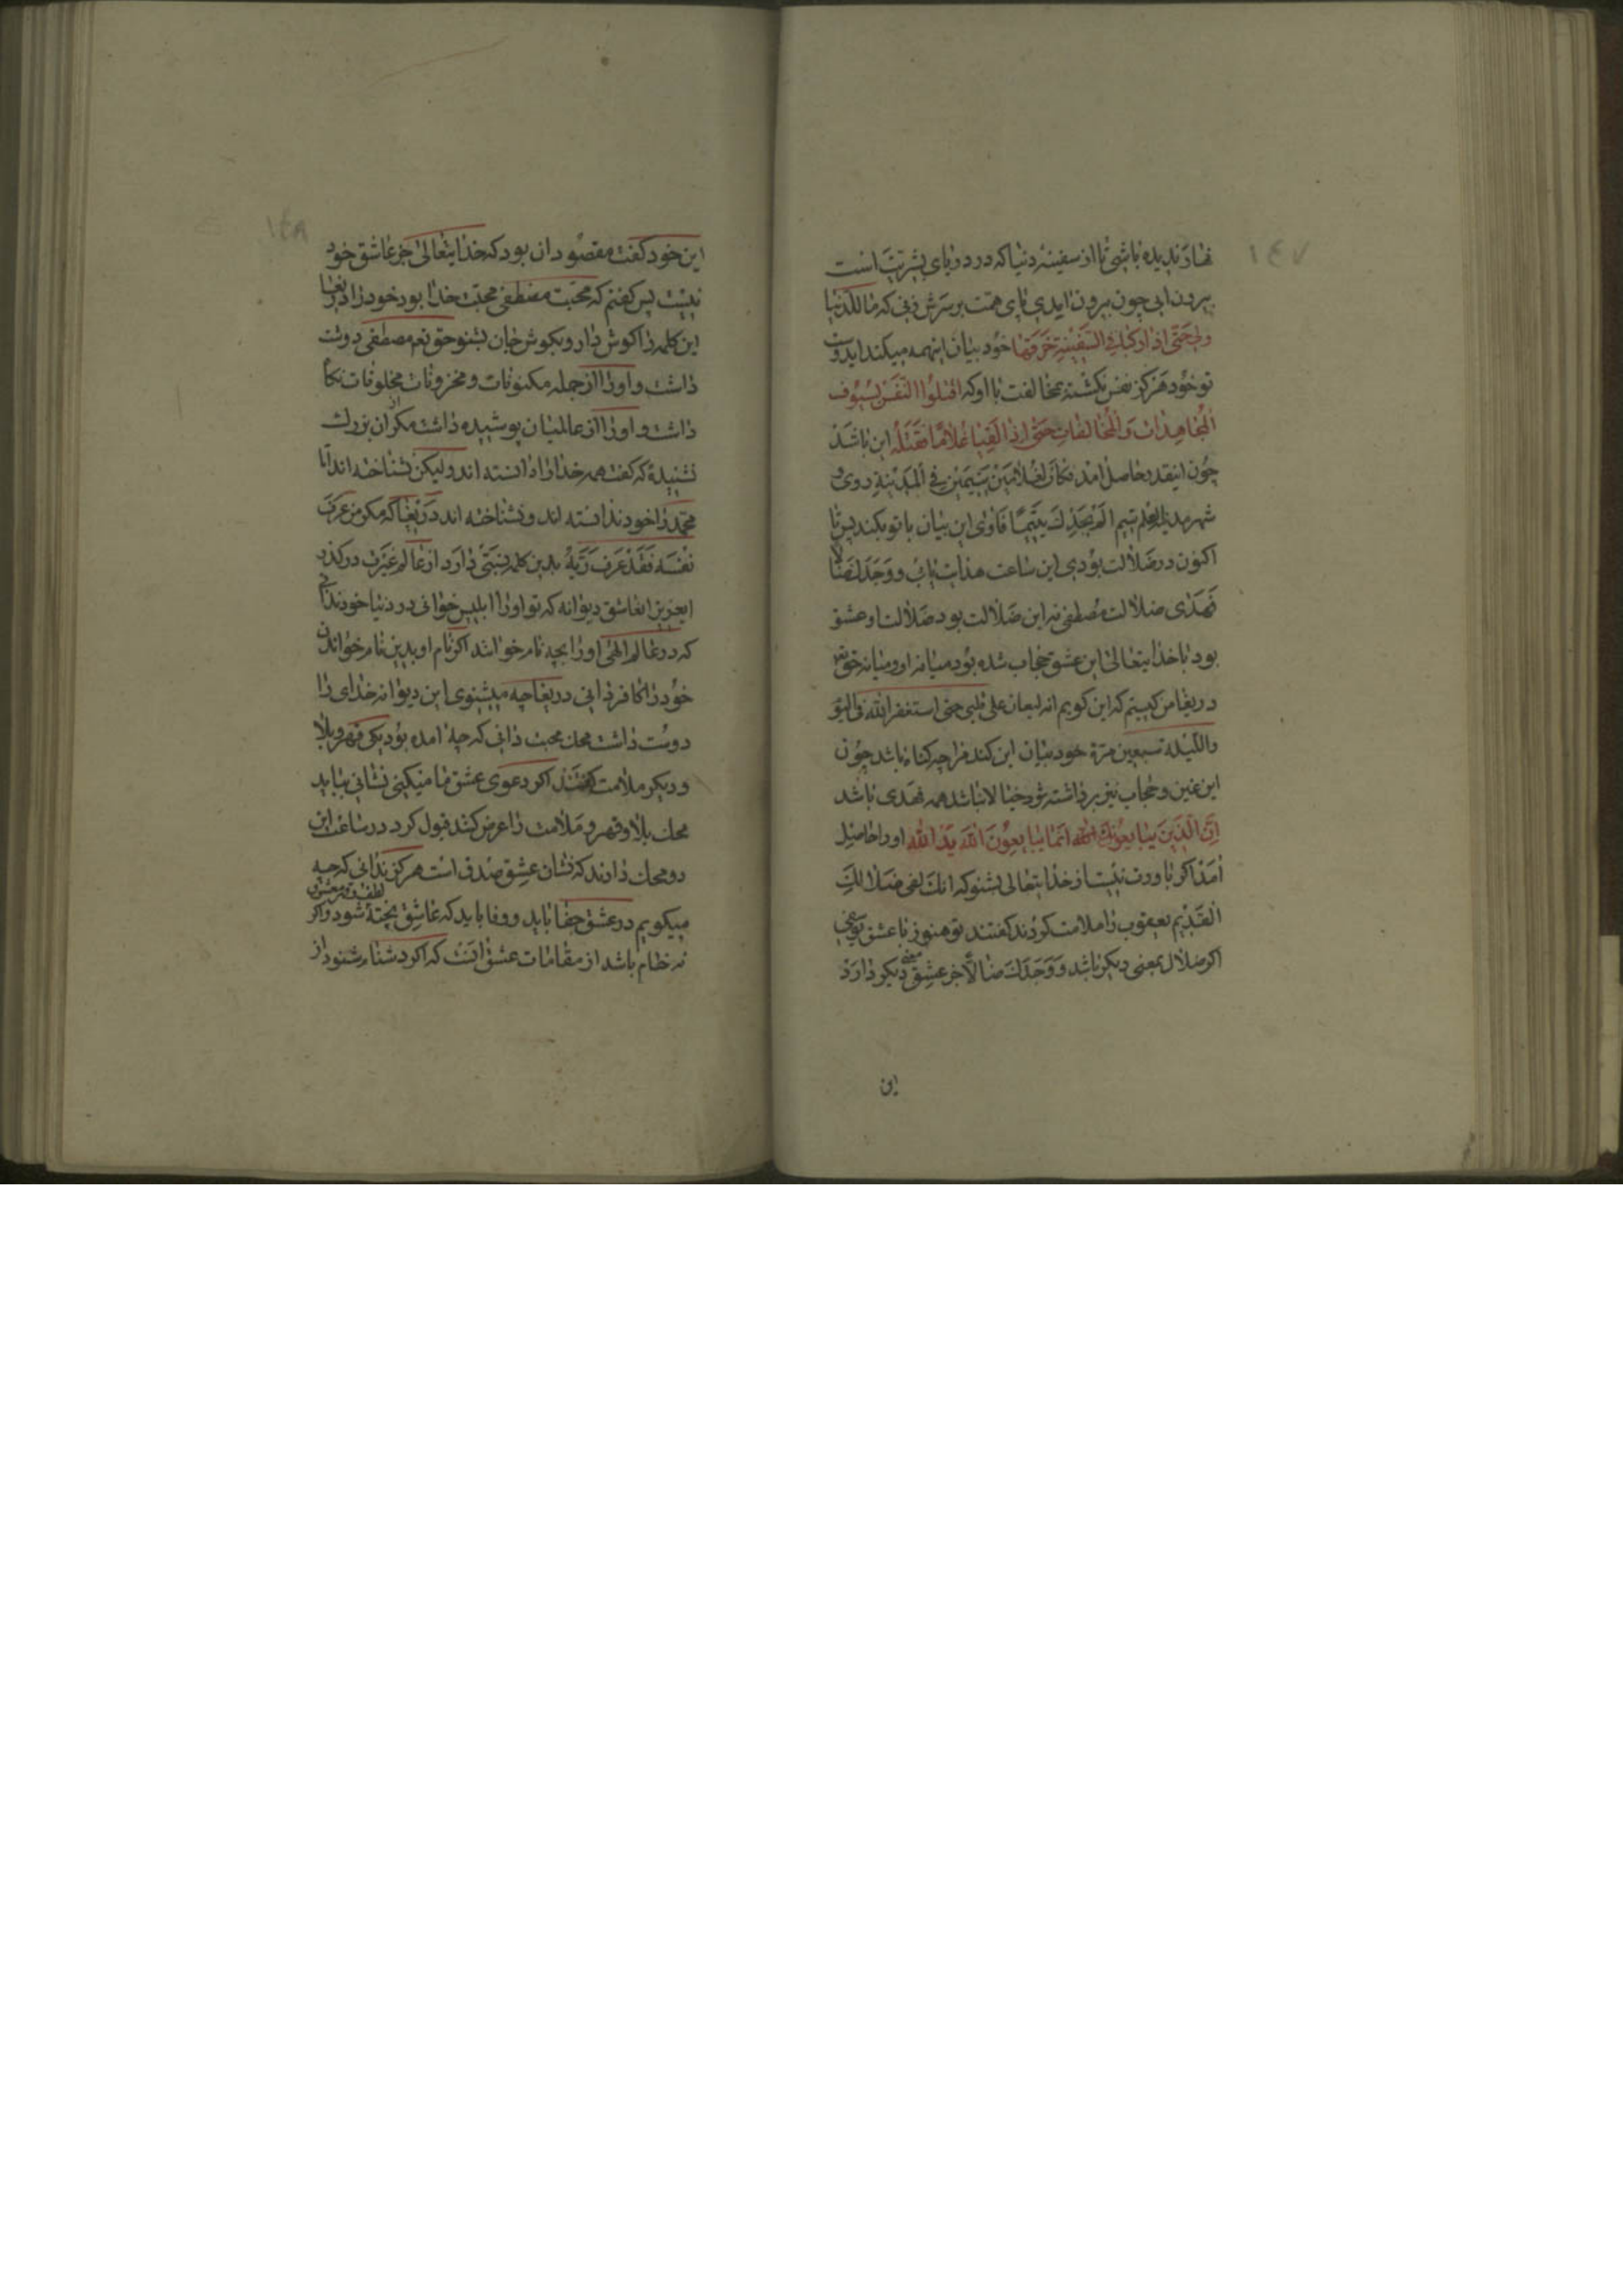 ١٤٧
نهاد ندیده باشی تا از سفینه دنیا که در دریای بشریت است
بیرون ایی چون بیرون ایدی پای همت بر سرش زنی که مالی للدنیا
ولی حتی اذا رکبا فی السفینة خرقها خود بیان اینهمه میکند ایدوست
تو خود هرگز نفس نکشته بمخالفت با او که اقتلوا النفس بسیوف
المجاهدات و المخالفات حتی اذا لقیا غلاما فقتله این باشد
چون اینقدر حاصل امد فکان لغلامین یتیمین فی المدینة روی
شهر مدینة العلم یتیم الم یجدک یتیما فاوی این بیان با تو بکند پس تا
اکنون در ضلالت بودی این ساعت هدایت یابی و وجدک ضالا
فهدی ضلالت مصطفی نه این ضلالت بود ضلالت او عشق
بود با خدایتعالی این عشق حجاب شده بود میان او و میانه حق تعالی
دریغا من کیستم که این گویم انه لیغان علی قلبی حتی استغفر الله فی الیوم
واللیلة سبعین مرة خود بیان این کند مرا چه کناه باشد چون
این غین و حجاب نیز برداشته شود ضالا نباشد همه فهدی باشد
ان الذین یبایعونک انما یبایعون الله ید الله او را حاصل
امد اکر باورت نیست از خدایتعالی بشنو که انک لفی ضلالک
القدیم یعقوب را ملامت کردند گفتند تو هنوز با عشق یوسفی
اکر ضلال بمعنی دیگر باشد و وجدک ضالا جز عشق معنی دیگر دارد
این
١٤٨
این خود کفت مقصود ان بود که خدایتعالی جز عاشق خود
نیست پس گفتم که محبت مصطفی محبت خدا بود خود را دریغا
این کلمه را گوش دار و بگوش جان بشنو حق تعم مصطفی دوست
داشت و او را از جمله مکنونات و مخزونات مخلوقات نکاه
داشت و او را از عالمیان پوشیده داشت مگر از ان بزرگ
نشنیدهٔ که کفت همه خدا را دانسته اند ولیکن نشناخته اند اما
محمد را خود ندانسته اند و نشناخته اند دریغا که مکر من عرف
نفسه فقد عرف ربه بدین کلمه نسبتی دارد از عالم غیرت درگذر
ایعزیز انعاشق دیوانه که تو او را ابلیس خوانی در دنیا خود ندانی
که در عالم الهی او را بچه نام خوانند اکر نام او بدین نام خواندن
خود را کافر دانی دریغا چه میشنوی این دیوانه خدای را
دوست داشت محک محبت دانی که چه امده بود یکی قهر و بلا
و دیگر ملامت گفتند اکر دعوی عشق ما میکنی نشانی بباید
محک بلا و قهر و ملامت را عرض کند قبول کرد در ساعت این
دو محک دادند که نشان عشق صدق است هرگز ندانی که چه
میگویم در عشق جفا باید و وفا باید که عاشق پخته شود و اکر
لطف و قهر معشوق
نه خام باشد از مقامات عشق انست که اکر دشنام شنود از